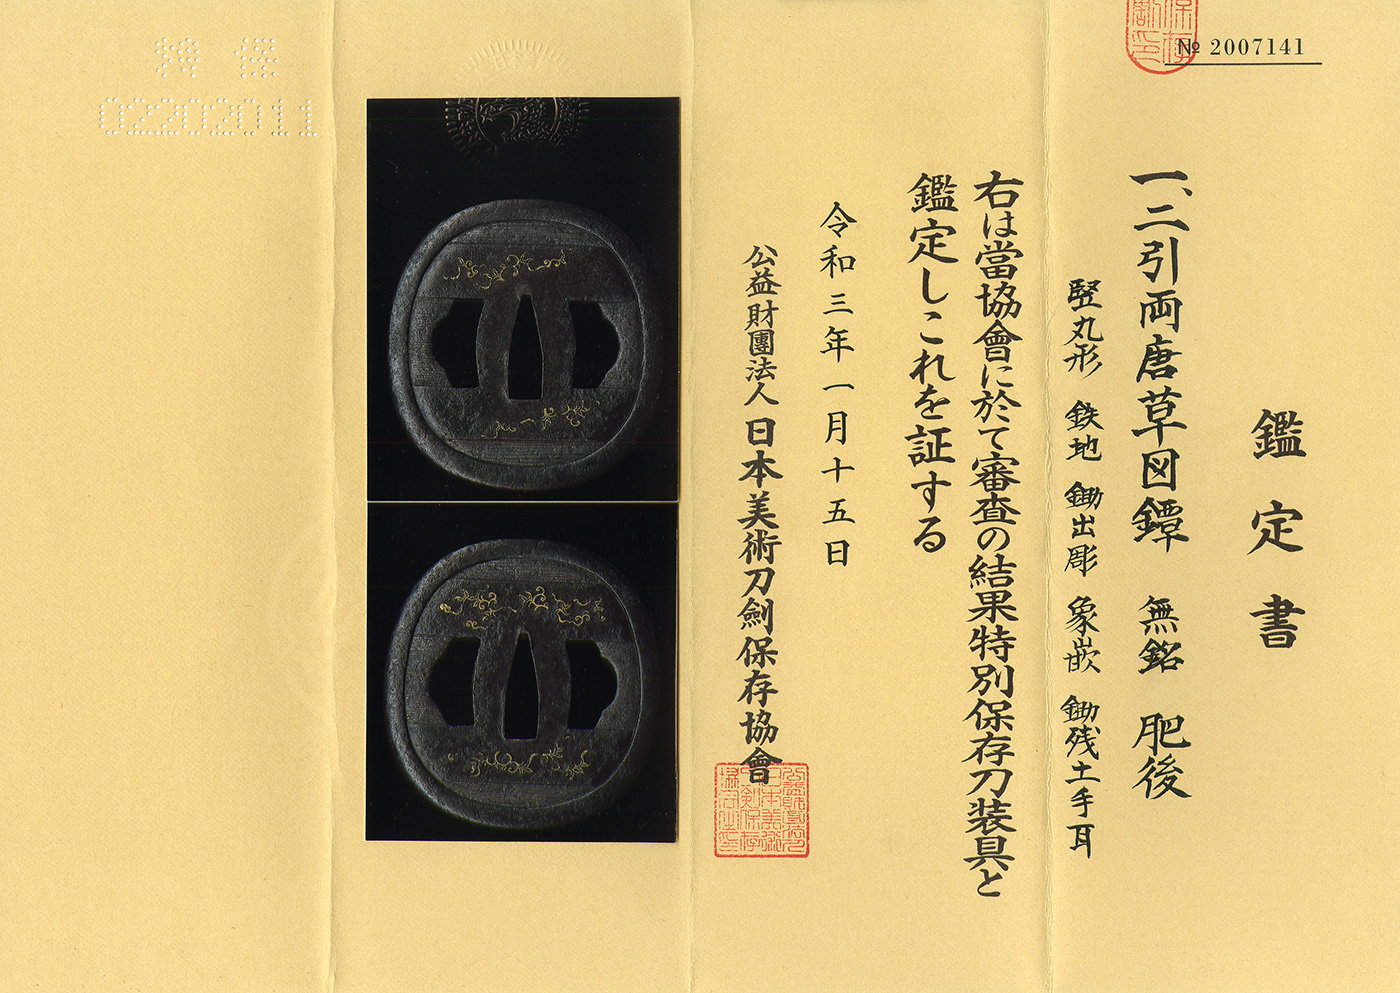 № 2007141
鑑定書
一、二引両唐草図鐔 無銘 肥後
竪丸形 鉄地 鋤出彫 象嵌 鋤残土手耳
右は當協會に於て審査の結果特別保存刀装具と
鑑定しこれを証する
令和三年一月十五日
公益財團法人 日本美術刀劍保存協會
02202011